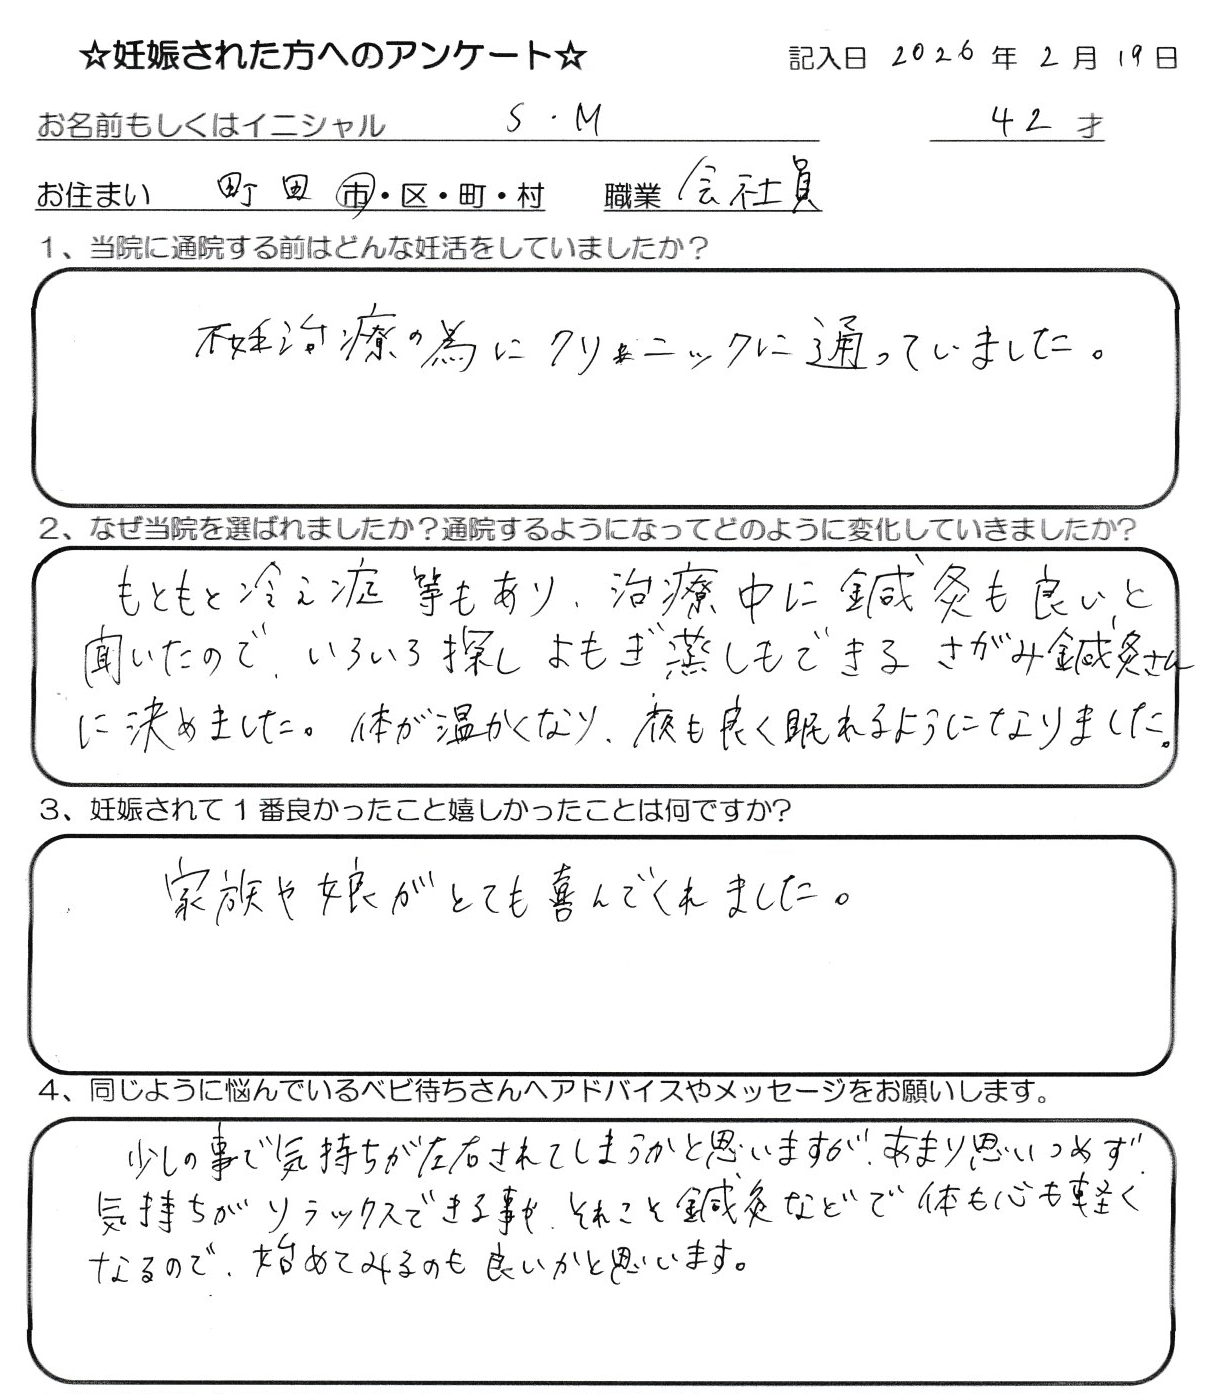 ☆妊娠された方へのアンケート☆ 記入日 2026年2月19日
お名前もしくはイニシャル S.M 42才
お住まい 町田 市・区・町・村 職業 会社員
1、当院に通院する前はどんな妊活をしていましたか?
不妊治療の為にクリニックに通っていました。
2、なぜ当院を選ばれましたか?通院するようになってどのように変化していきましたか?
もともと冷え症等もあり、治療中に鍼灸も良いと
聞いたので、いろいろ探しよもぎ蒸しもできるさがみ鍼灸さん
に決めました。体が温かくなり、夜も良く眠れるようになりました。
3、妊娠されて1番良かったこと嬉しかったことは何ですか?
家族や娘がとても喜んでくれました。
4、同じように悩んでいるベビ待ちさんへアドバイスやメッセージをお願いします。
少しの事で気持ちが左右されてしまうかと思いますが、あまり思いつめず、
気持ちがリラックスできる事や、それこそ鍼灸などで体も心も軽く
なるので、始めてみるのも良いかと思います。